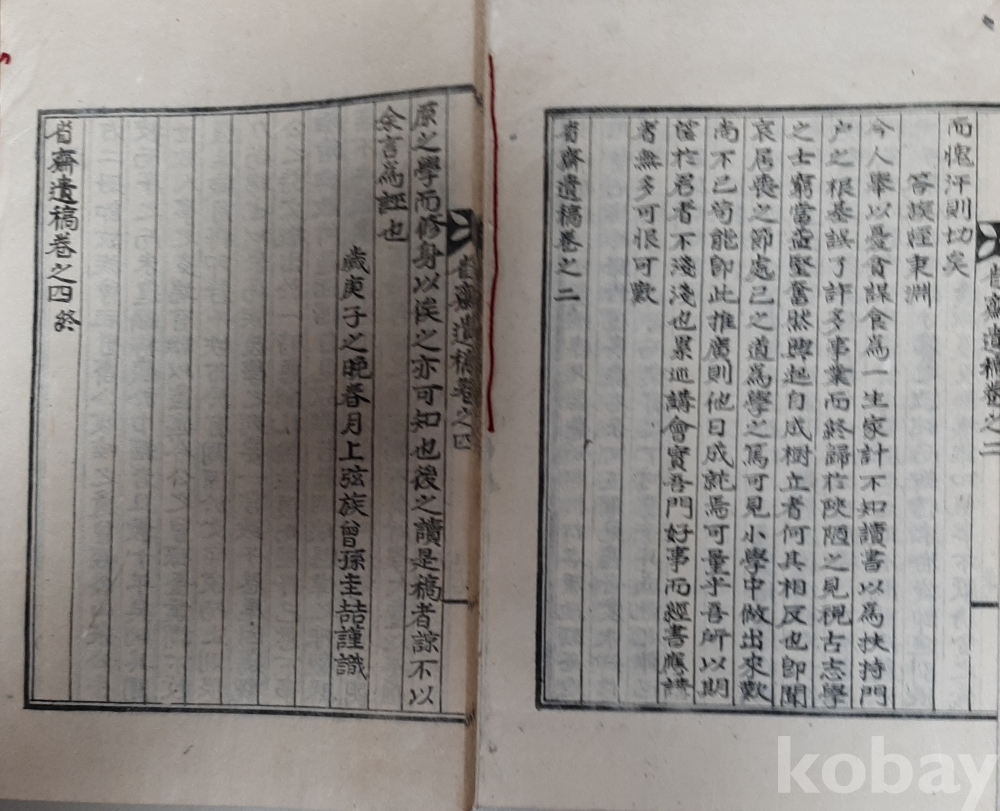 而愧汗則切矣
答族姪東淵
今人擧以憂貧謀食爲一生家計不知讀書以爲挾持門
户之根基誤了許多事業而終歸於陜陋之見視古志學
之士窮當益堅奮然興起自成樹立者何其相反也卽聞
哀居喪之節處己之道爲學之篤可見小學中做出來歎
尚不已苟能卽此推廣則他日成就焉可量乎吾所以期
望於君者不淺淺也累巡講會實吾門好事而經書應講
者無多可恨可歎
省齋遺稿卷之二
省齋遺稿卷之二
原之學而修身以俟之亦可知也後之讀是稿者諒不以
余言爲誣也
歲庚子之晩春月上弦族曾孫圭喆謹識
省齋遺稿卷之四終
省齋遺稿卷之四
kobay